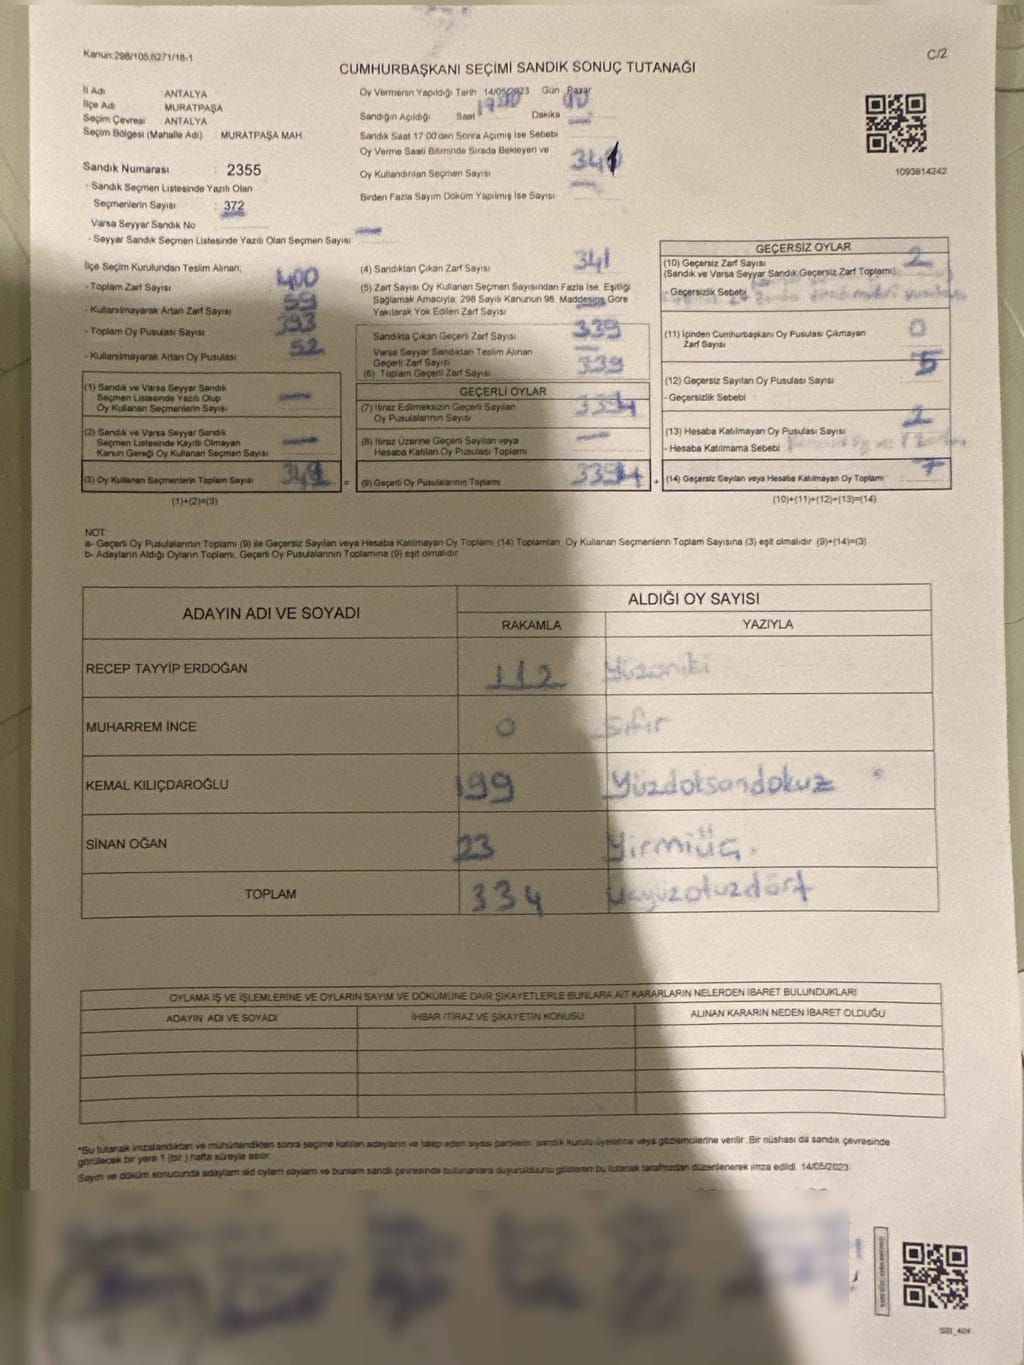 Kanun:298/105,6271/18-1
C/2
CUMHURBAŞKANI SEÇİMİ SANDIK SONUÇ TUTANAĞI
İl Adı ANTALYA
İlçe Adı MURATPAŞA
Seçim Çevresi ANTALYA
Seçim Bölgesi (Mahalle Adı) : MURATPAŞA MAH.
Sandık Numarası : 2355
- Sandık Seçmen Listesinde Yazılı Olan
Seçmenlerin Sayısı : 372
Varsa Seyyar Sandık No
- Seyyar Sandık Seçmen Listesinde Yazılı Olan Seçmen Sayısı:
Oy Vermenin Yapıldığı Tarih 14/05/2023 Gün Pazar
Sandığın Açıldığı Saat Dakika
Sandık Saat 17:00'den Sonra Açılmış İse Sebebi
Oy Verme Saati Bitiminde Sırada Bekleyen ve
Oy Kullandırılan Seçmen Sayısı
Birden Fazla Sayım Döküm Yapılmış İse Sayısı
1093814242
İlçe Seçim Kurulundan Teslim Alınan;
- Toplam Zarf Sayısı 400
- Kullanılmayarak Artan Zarf Sayısı 59
- Toplam Oy Pusulası Sayısı 393
- Kullanılmayarak Artan Oy Pusulası 52
(1) Sandık ve Varsa Seyyar Sandık
Seçmen Listesinde Yazılı Olup
Oy Kullanan Seçmenlerin Sayısı
(2) Sandık ve Varsa Seyyar Sandık
Seçmen Listesinde Kayıtlı Olmayan
Kanun Gereği Oy Kullanan Seçmen Sayısı
(3) Oy Kullanan Seçmenlerin Toplam Sayısı
(1)+(2)=(3)
(4) Sandıktan Çıkan Zarf Sayısı 341
(5) Zarf Sayısı Oy Kullanan Seçmen Sayısından Fazla İse, Eşitliği
Sağlamak Amacıyla; 298 Sayılı Kanunun 98. Maddesine Göre
Yakılarak Yok Edilen Zarf Sayısı
Sandıkta Çıkan Geçerli Zarf Sayısı 339
Varsa Seyyar Sandıktan Teslim Alınan
Geçerli Zarf Sayısı
(6) Toplam Geçerli Zarf Sayısı 339
GEÇERLİ OYLAR
(7) İtiraz Edilmeksizin Geçerli Sayılan
Oy Pusulalarının Sayısı
(8) İtiraz Üzerine Geçerli Sayılan veya
Hesaba Katılan Oy Pusulası Toplamı
= (9) Geçerli Oy Pusulalarının Toplamı
GEÇERSİZ OYLAR
(10) Geçersiz Zarf Sayısı 2
(Sandık ve Varsa Seyyar Sandık Geçersiz Zarf Toplamı)
- Geçersizlik Sebebi
(11) İçinden Cumhurbaşkanı Oy Pusulası Çıkmayan 0
Zarf Sayısı
(12) Geçersiz Sayılan Oy Pusulası Sayısı 5
- Geçersizlik Sebebi :
(13) Hesaba Katılmayan Oy Pusulası Sayısı
- Hesaba Katılmama Sebebi
+ (14) Geçersiz Sayılan veya Hesaba Katılmayan Oy Toplamı 7
(10)+(11)+(12)+(13)=(14)
NOT:
a- Geçerli Oy Pusulalarının Toplamı (9) ile Geçersiz Sayılan veya Hesaba Katılmayan Oy Toplamı (14) Toplamları, Oy Kullanan Seçmenlerin Toplam Sayısına (3) eşit olmalıdır (9)+(14)=(3)
b- Adayların Aldığı Oyların Toplamı, Geçerli Oy Pusulalarının Toplamına (9) eşit olmalıdır
ADAYIN ADI VE SOYADI ALDIĞI OY SAYISI
RAKAMLA YAZIYLA
RECEP TAYYİP ERDOĞAN 112 Yüzoniki
MUHARREM İNCE 0 Sıfır
KEMAL KILIÇDAROĞLU 199 Yüzdoksandokuz
SİNAN OĞAN 23 Yirmiüç.
TOPLAM 334 üçyüzotuzdört
OYLAMA İŞ VE İŞLEMLERİNE VE OYLARIN SAYIM VE DÖKÜMÜNE DAİR ŞİKAYETLERLE BUNLARA AİT KARARLARIN NELERDEN İBARET BULUNDUKLARI
ADAYIN ADI VE SOYADI İHBAR İTİRAZ VE ŞİKAYETİN KONUSU ALINAN KARARIN NEDEN İBARET OLDUĞU
*Bu tutanak imzalandıktan ve mühürlendikten sonra seçime katılan adayların ve talep eden siyasi partilerin sandık kurulu üyelerine veya gözlemcilerine verilir. Bir nüshası da sandık çevresinde
görülecek bir yere 1 (bir) hafta süreyle asılır.
Sayım ve döküm sonucunda adayların ald
14/05/2023